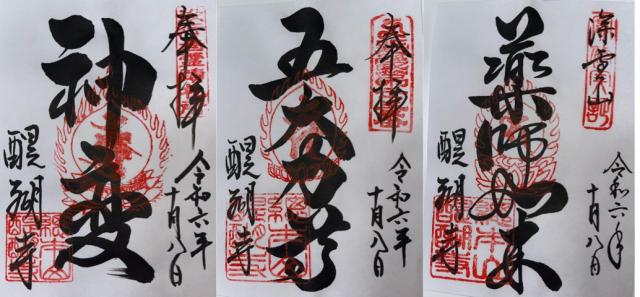 奉拝
神変
醍醐寺
令和六年
十月八日
奉拝
五大力尊
醍醐寺
令和六年
十月八日
深雪山
薬師如来
醍醐寺
令和六年
十月八日